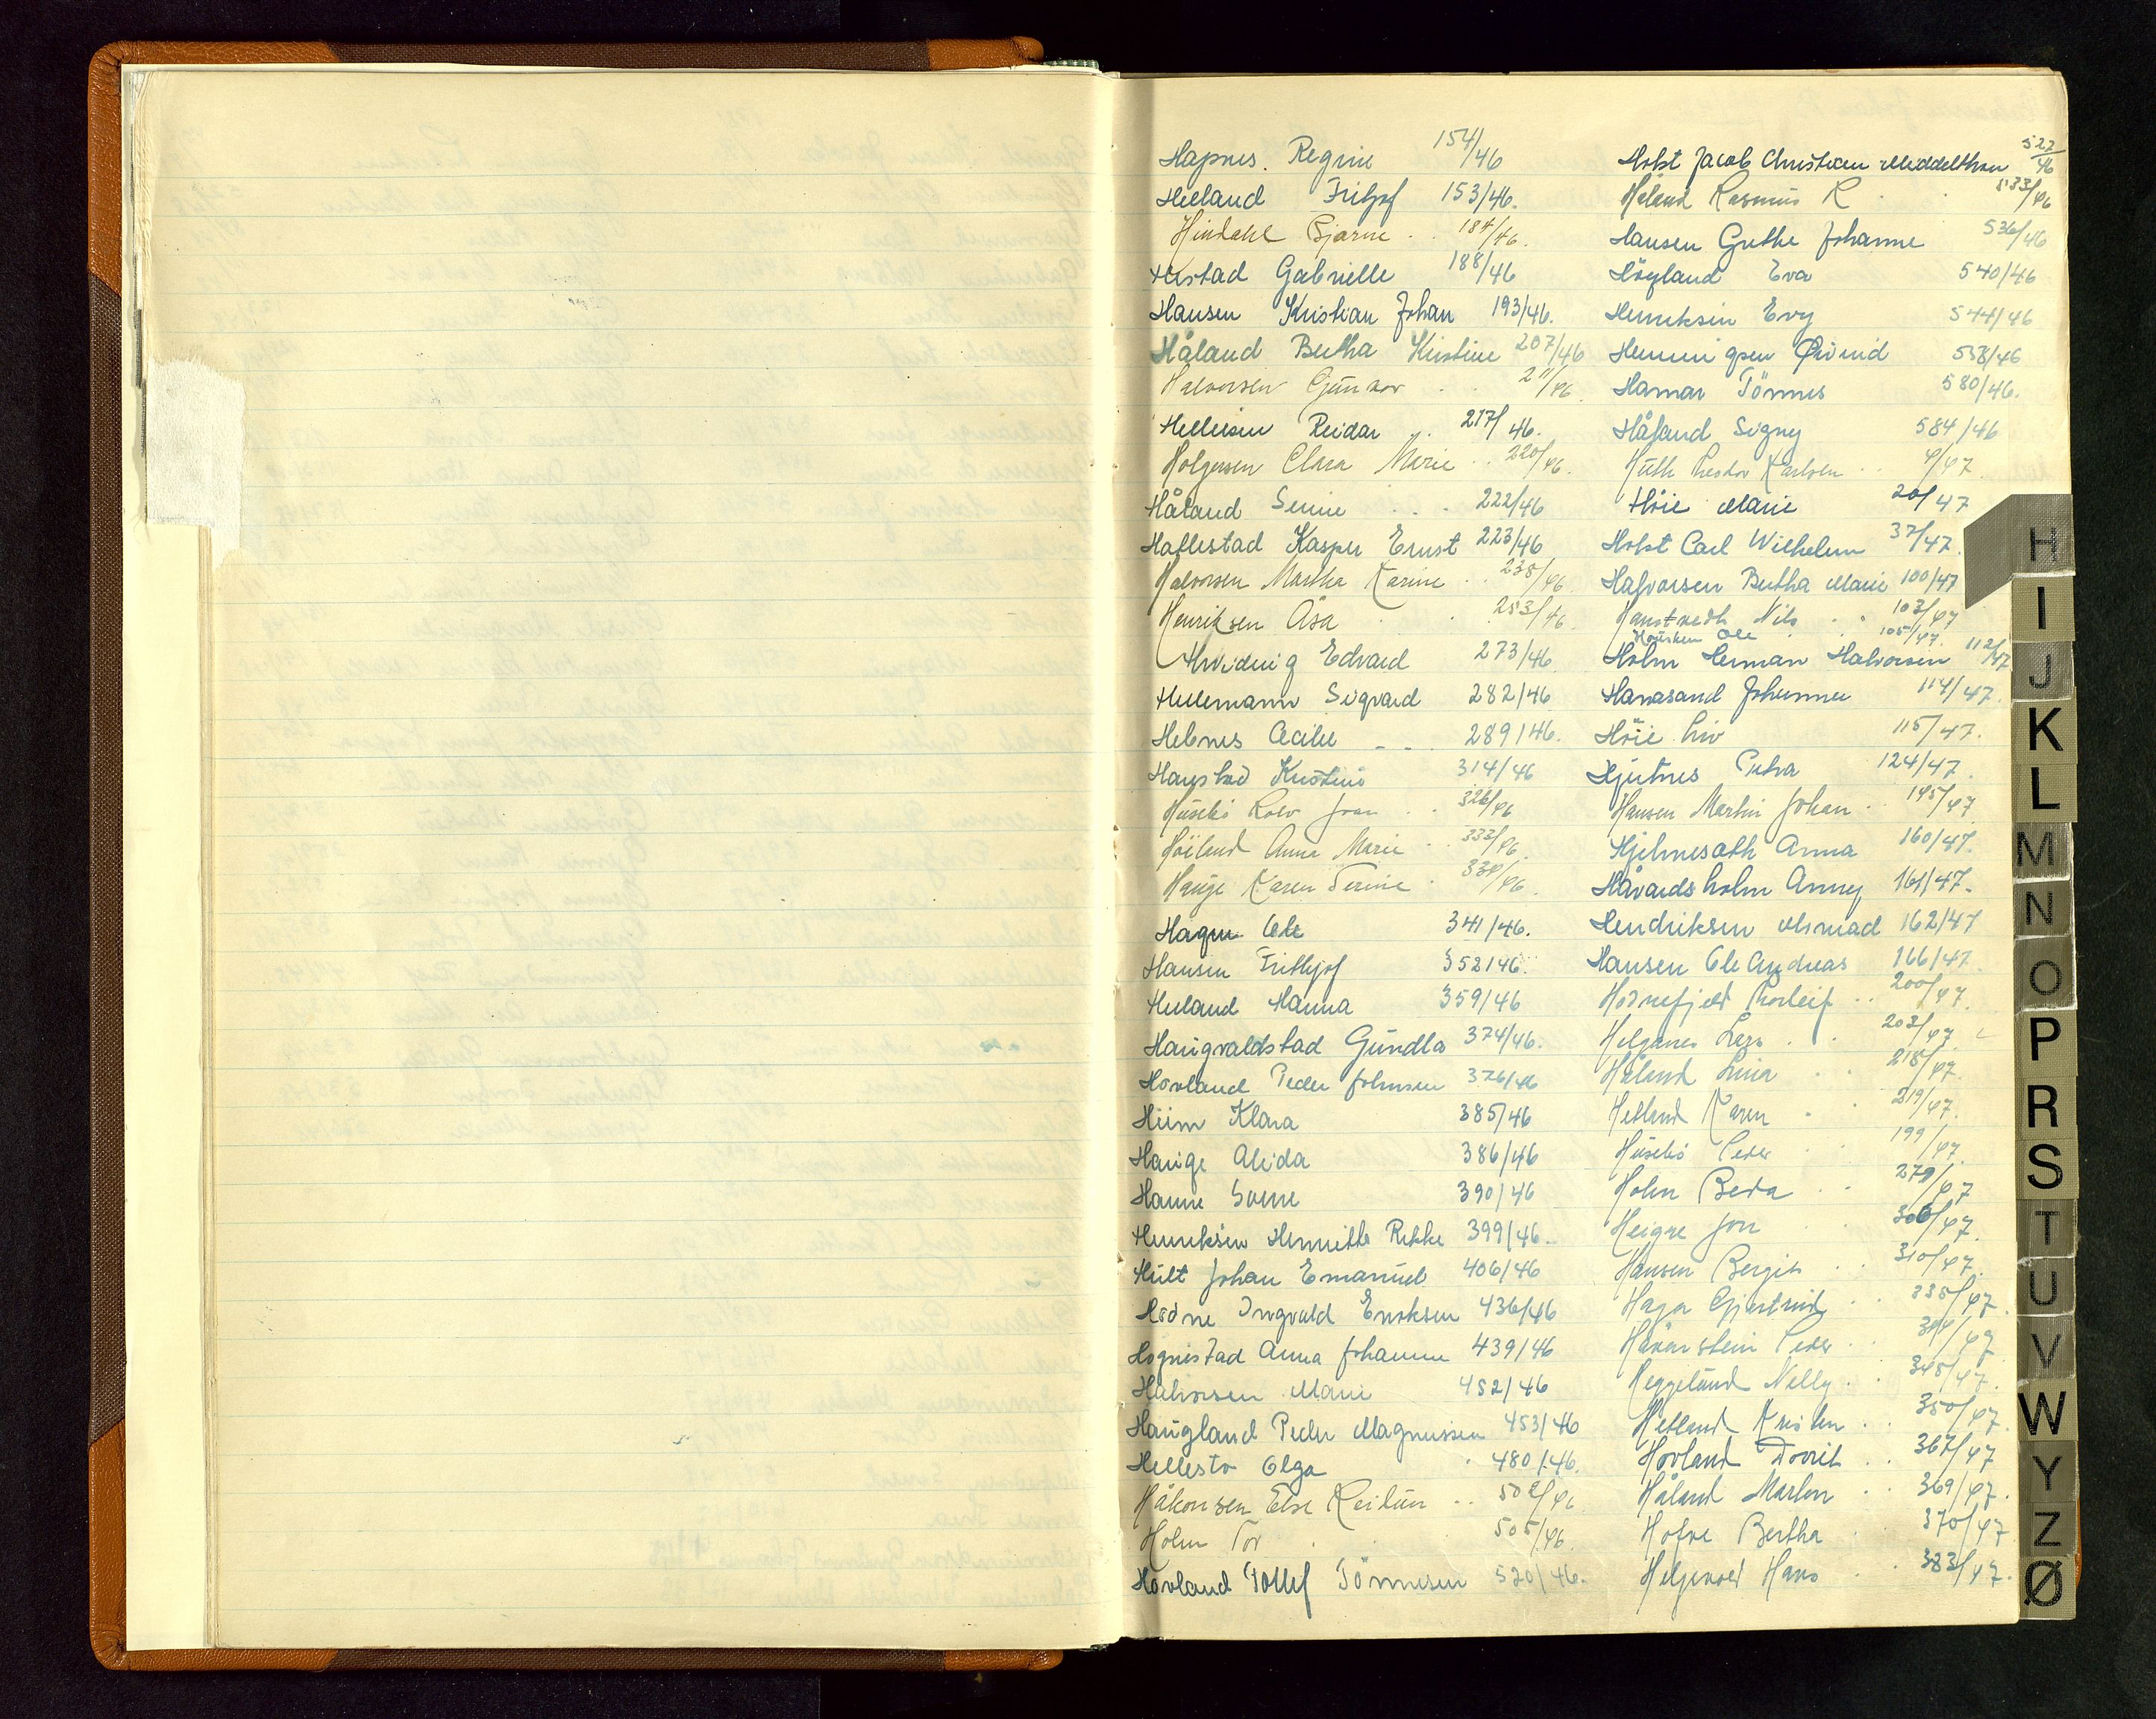 Hapnes. Regine 154/46
Helland Fritjof 153/46.
Hindahl Bjarne . . 184/46.
Hestad Gabrielle 188/46
Hansen Kristian Johan 193/46.
Håland Bertha Kirstine 207/46
Halvorsen Gunvor . . 211/46.
Helliesen Reidar . . 217/46.
Holgersen Clara Marie . . 220/46.
Håland Senie . . . 222/46
Haflestad Kasper Ernst 223/46
Halvorsen Martha Karine . . 238/46
Henriksen Åsa . . 253/46.
Hvidnig Edvard 273/46
Hellemann Sigvard 282/46
Hebnes Cecilie - . . 289/46.
Haustad Kristine 314/46
Husebö Rolv Joan . . 326/46
Höiland Anna Marie . . 333/46.
Hauge Karen Terine . 339/46.
Hagen Ole 341/46.
Hansen Frithjof 352/46.
Helland Hanna 359/46
Haugvaldstad Gundla 374/46.
Hovland Peder Johnsen 376/46
Hiim Klara 385/46
Hauge Alida 386/46
Hanne 390/46
Henriksen Henriette Rikke 399/46.
Hult Johan Emanuel 406/46
Hodne Ingvald Eriksen 436/46
Hognestad Anna Johanne 439/46
Halvorsen Marie 452/46
Haugland Peder Magnussen 453/46
Hellestø Olga . 480/46.
Håkonsen Else Reidun . . 502/46
Holm Tor . . 505/46.
Hovland Tollef Tönnesen 520/46.
Holst Jacob Christian Middelthon 527/46
Håland Rasmus R . . 533/46
Hansen Grethe Johanne 536/46
Högland Eva 540/46
Henriksen Evy 544/46
Henningsen Øivind 558/46
Hamar Tönnes 580/46.
Håland Signy 584/46
Huth Theodor Karlsen . . 9/47
Höie Marie 20/47
Holst Carl Wilhelm 37/47.
Halvorsen Bertha Marie 100/47
Hanstvedt Nils . . 103/47
Hausken Ole . . 105/47.
Holm Herman Halvorsen 112/47
Hanasand Johanne 114/47.
Höie Liv 115/47.
Hjertnes Petra 124/47.
Hansen Martin Johan . . 145/47
Hjelmesæth Anna 160/47.
Håvardsholm Anny 161/47.
Hendriksen 162/47
Hansen Ole Andreas 166/47
Hodnefjeld Thorleif . . 200/47.
Helganes Lars . . 203/47
Håland Lina . . 218/47.
Hetland Karen . . 219/47.
Husebö Peder . 199/47.
Holm Beda . . 279/47
Heigre Jon . . 306/47.
Hansen Bergit . . 310/47.
Haga Gjertrud . . 335/47.
Håvarstein Peder . 344/47
Heggelund Nelly . . 345/47.
Hetland Kristen . . 350/47.
Hovland Dorrit . . 367/47
Håland Marton . . 369/47.
Hofve Bertha . 370/47
Helgevold Hans . . 383/47.
H
I
J
K
L
M
N
O
P
R
S
T
U
V
W
Y
Z
Ø